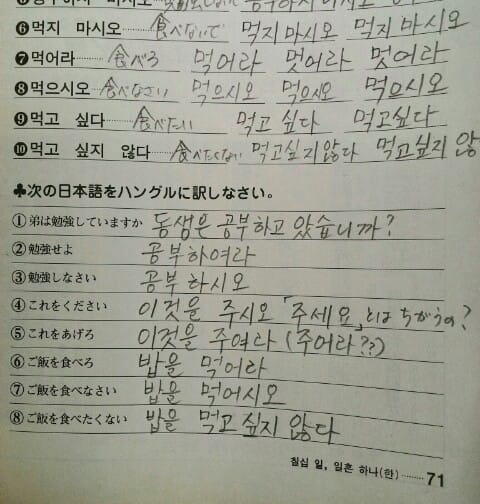 ⑥먹지 마시오 食べないで 먹지 마시오 먹지 마시오
⑦먹어라 食べろ 먹어라 멋어라 멋어라
⑧먹으시오 食べなさい 먹으시오 먹으시오 먹으시오
⑨먹고 싶다 食べたい 먹고 싶다 먹고싶다
⑩먹고 싶지 않다 食べたくない 먹고싶지않다 먹고싶지 않
♣次の日本語をハングルに訳しなさい。
①弟は勉強していますか 동생은 공부하고 았습니까?
②勉強せよ 공부하여라
③勉強しなさい 공부 하시오
④これをください 이것을 주시오 「주세요」とはちがうの?
⑤これをあげろ 이것을 주여라 (주어라??)
⑥ご飯を食べろ 밥을 먹어라
⑦ご飯を食べなさい 밥을 먹어시오
⑧ご飯を食べたくない 밥을 먹고싶지 않다
칠십 일, 일흔 하나(한)………71